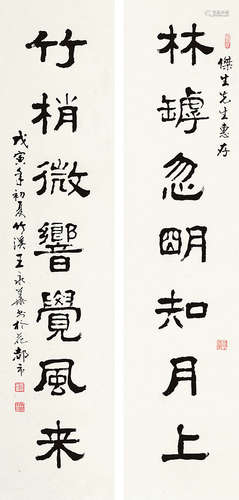 傑生先生惠存
林罅忽明知月上
竹梢微響覺風来
戊寅年初夏竹溪王永華书於花都市